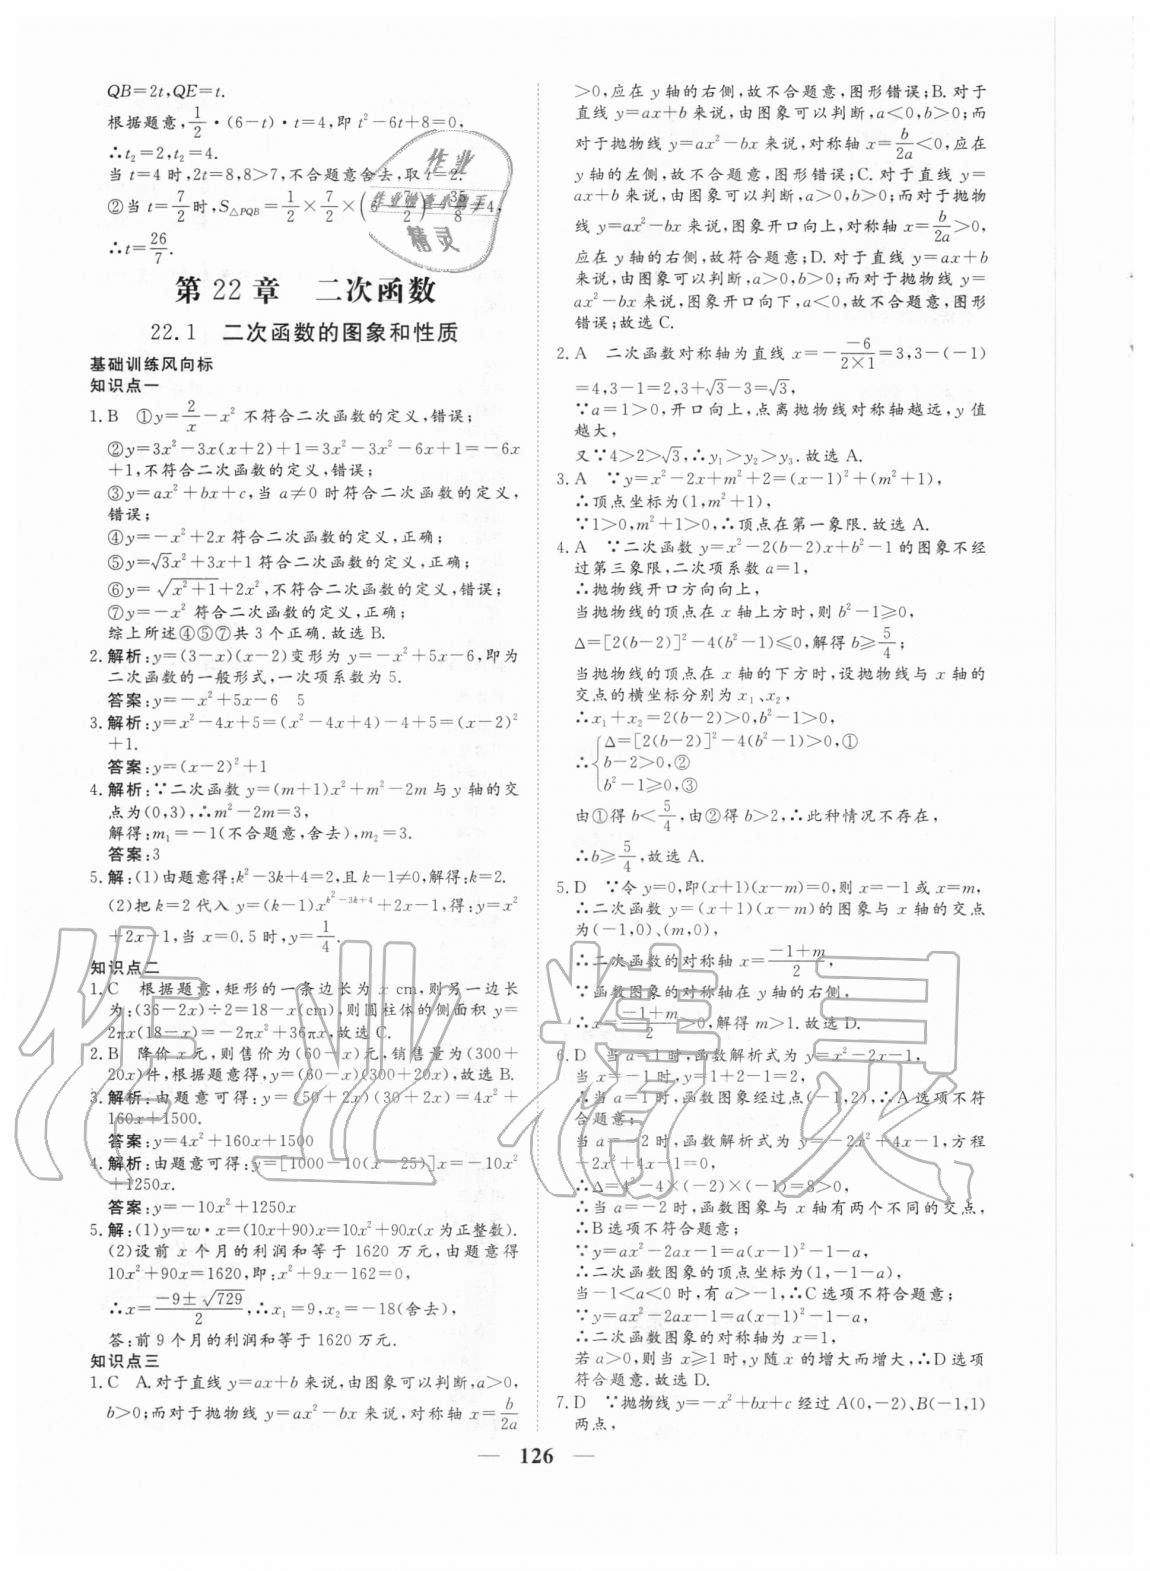 QB=2t,QE=t.
根据题意,1/2·(6-t)·t=4,即 t²-6t+8=0,
∴t₂=2,t₂=4.
当 t=4 时,2t=8,8>7,不合题意舍去,取 t=2.
②当 t=7/2 时,S△PQB=1/2×7/2×(6-7/2)=35/8≠4,
∴t=26/7.
第 22 章 二次函数
22.1 二次函数的图象和性质
基础训练风向标
知识点一
1.B ①y=2/x-x² 不符合二次函数的定义,错误;
②y=3x²-3x(x+2)+1=3x²-3x²-6x+1=-6x
+1,不符合二次函数的定义,错误;
③y=ax²+bx+c,当 a≠0 时符合二次函数的定义,
错误;
④y=-x²+2x 符合二次函数的定义,正确;
⑤y=√3x²+3x+1 符合二次函数的定义,正确;
⑥y=√(x²+1)+2x²,不符合二次函数的定义,错误;
⑦y=-x² 符合二次函数的定义,正确;
综上所述④⑤⑦共 3 个正确.故选 B.
2.解析:y=(3-x)(x-2)变形为 y=-x²+5x-6,即为
二次函数的一般形式,一次项系数为 5.
答案:y=-x²+5x-6 5
3.解析:y=x²-4x+5=(x²-4x+4)-4+5=(x-2)²
+1.
答案:y=(x-2)²+1
4.解析:∵二次函数 y=(m+1)x²+m²-2m 与 y 轴的交
点为(0,3),∴m²-2m=3,
解得:m₁=-1(不合题意,舍去),m₂=3.
答案:3
5.解:(1)由题意得:k²-3k+4=2,且 k-1≠0,解得:k=2.
(2)把 k=2 代入 y=(k-1)x^(k²-3k+4)+2x-1,得:y=x²
+2x-1,当 x=0.5 时,y=1/4.
知识点二
1.C 根据题意,矩形的一条边长为 x cm,则另一边长
为:(36-2x)÷2=18-x(cm),则圆柱体的侧面积 y=
2πx(18-x)=-2πx²+36πx,故选 C.
2.B 降价 x 元,则售价为(60-x)元,销售量为(300+
20x)件,根据题意得,y=(60-x)(300+20x),故选 B.
3.解析:由题意可得:y=(50+2x)(30+2x)=4x²+
160x+1500.
答案:y=4x²+160x+1500
4.解析:由题意可得:y=[1000-10(x-25)]x=-10x²
+1250x.
答案:y=-10x²+1250x
5.解:(1)y=w·x=(10x+90)x=10x²+90x(x 为正整数).
(2)设前 x 个月的利润和等于 1620 万元,由题意得
10x²+90x=1620,即:x²+9x-162=0,
∴x=(-9±√729)/2,∴x₁=9,x₂=-18(舍去),
答:前 9 个月的利润和等于 1620 万元.
知识点三
1.C A.对于直线 y=ax+b 来说,由图象可以判断,a>0,
b>0;而对于抛物线 y=ax²-bx 来说,对称轴 x=b/2a
>0,应在 y 轴的右侧,故不合题意,图形错误;B.对于
直线 y=ax+b 来说,由图象可以判断,a<0,b>0;而
对于抛物线 y=ax²-bx 来说,对称轴 x=b/2a<0,应在
y 轴的左侧,故不合题意,图形错误;C.对于直线 y=
ax+b 来说,由图象可以判断,a>0,b>0;而对于抛物
线 y=ax²-bx 来说,图象开口向上,对称轴 x=b/2a>0,
应在 y 轴的右侧,故符合题意;D.对于直线 y=ax+b
来说,由图象可以判断,a>0,b>0;而对于抛物线 y=
ax²-bx 来说,图象开口向下,a<0,故不合题意,图形
错误;故选 C.
2.A 二次函数对称轴为直线 x=-(-6)/(2×1)=3,3-(-1)
=4,3-1=2,3+√3-3=√3,
∵a=1>0,开口向上,点离抛物线对称轴越远,y 值
越大,
又∵4>2>√3,∴y₁>y₂>y₃.故选 A.
3.A ∵y=x²-2x+m²+2=(x-1)²+(m²+1),
∴顶点坐标为(1,m²+1),
∵1>0,m²+1>0,∴顶点在第一象限.故选 A.
4.A ∵二次函数 y=x²-2(b-2)x+b²-1 的图象不经
过第三象限,二次项系数 a=1,
∴抛物线开口方向向上,
当抛物线的顶点在 x 轴上方时,则 b²-1≥0,
Δ=[2(b-2)]²-4(b²-1)≤0,解得 b≥5/4;
当抛物线的顶点在 x 轴的下方时,设抛物线与 x 轴的
交点的横坐标分别为 x₁、x₂,
∴x₁+x₂=2(b-2)>0,b²-1>0,
∴{Δ=[2(b-2)]²-4(b²-1)>0,①
b-2>0,②
b²-1≥0,③
由①得 b<5/4,由②得 b>2,∴此种情况不存在,
∴b≥5/4,故选 A.
5.D ∵令 y=0,即(x+1)(x-m)=0,则 x=-1 或 x=m,
∴二次函数 y=(x+1)(x-m)的图象与 x 轴的交点
为(-1,0)、(m,0),
∴二次函数的对称轴 x=(-1+m)/2,
∵函数图象的对称轴在 y 轴的右侧,
∴x=(-1+m)/2>0,解得 m>1.故选 D.
6.D 当 a=1 时,函数解析式为 y=x²-2x-1,
当 x=-1 时,y=1+2-1=2,
∴当 a=1 时,函数图象经过点(-1,2),∴A 选项不符
合题意;
当 a=-2 时,函数解析式为 y=-2x²+4x-1,方程
-2x²+4x-1=0,
∴Δ=4²-4×(-2)×(-1)=8>0,
∴当 a=-2 时,函数图象与 x 轴有两个不同的交点,
∴B 选项不符合题意;
∵y=ax²-2ax-1=a(x-1)²-1-a,
∴二次函数图象的顶点坐标为(1,-1-a),
当-1<a<0 时,有 a>-1,∴C 选项不符合题意;
∵y=ax²-2ax-1=a(x-1)²-1-a,
∴二次函数图象的对称轴为 x=1,
若 a>0,则当 x≥1 时,y 随 x 的增大而增大,∴D 选项
符合题意.故选 D.
7.D ∵抛物线 y=-x²+bx+c 经过 A(0,-2)、B(-1,1)
两点,
— 126 —
作业
作业检查小帮手
精灵
作业精灵